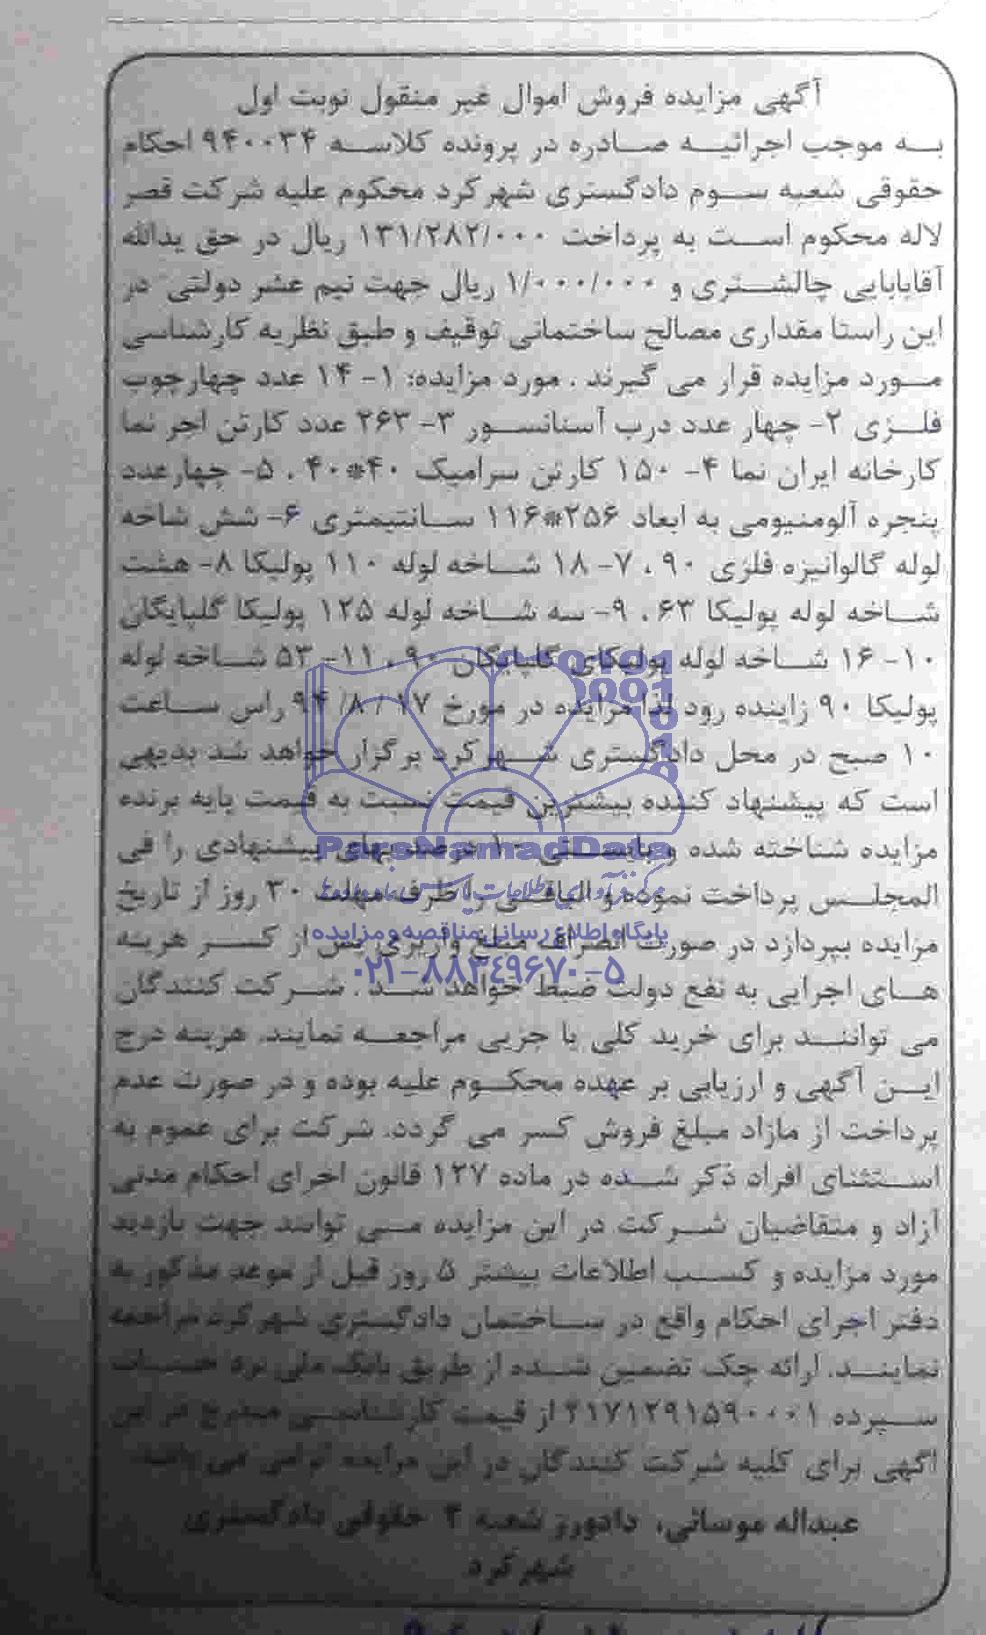 آگهی مزایده فروش اموال غیر منقول نوبت اول
به موجب اجرائیه صادره در پرونده کلاسه ۹۴۰۰۳۴ احکام
حقوقی شعبه سوم دادگستری شهرکرد محکوم علیه شرکت قصر
لاله محکوم است به پرداخت ۱۳۱/۲۸۲/۰۰۰ ریال در حق یدالله
آقابابایی چالشتری و ۱/۰۰۰/۰۰۰ ریال جهت نیم عشر دولتی در
این راستا مقداری مصالح ساختمانی توقیف و طبق نظریه کارشناسی
مورد مزایده قرار می گیرند . مورد مزایده: ۱- ۱۴ عدد چهارچوب
فلزی ۲- چهار عدد درب آسانسور ۳- ۲۶۳ عدد کارتن اجر نما
کارخانه ایران نما ۴- ۱۵۰ کارتن سرامیک ۴۰*۴۰ ، ۵- چهارعدد
پنجره آلومنیومی به ابعاد ۲۵۶*۱۱۶ سانتیمتری ۶- شش شاخه
لوله گالوانیزه فلزی ۹۰ ، ۷- ۱۸ شاخه لوله ۱۱۰ پولیکا ۸- هشت
شاخه لوله پولیکا ۶۳ ، ۹- سه شاخه لوله ۱۲۵ پولیکا گلپایگان
۱۰- ۱۶ شاخه لوله پولیکای گلپایگان ۹۰ ، ۱۱- ۵۳ شاخه لوله
پولیکا ۹۰ زاینده رود لذا مزایده در مورخ ۱۷ /۸/ ۹۴ راس ساعت
۱۰ صبح در محل دادگستری شهرکرد برگزار خواهد شد بدیهی
است که پیشنهاد کننده بیشترین قیمت نسبت به قیمت پایه برنده
مزایده شناخته شده و بایستی ۱۰ درصد بهای پیشنهادی را فی
المجلس پرداخت نموده و الباقی را ظرف مهلت ۳۰ روز از تاریخ
مزایده بپردازد در صورت انصراف مبلغ واریزی پس از کسر هزینه
های اجرایی به نفع دولت ضبط خواهد شد . شرکت کنندگان
می توانند برای خرید کلی یا جزیی مراجعه نمایند. هزینه درج
این آگهی و ارزیابی بر عهده محکوم علیه بوده و در صورت عدم
پرداخت از مازاد مبلغ فروش کسر می گردد. شرکت برای عموم به
استثنای افراد ذکر شده در ماده ۱۲۷ قانون اجرای احکام مدنی
آزاد و متقاضیان شرکت در این مزایده می توانند جهت بازدید
مورد مزایده و کسب اطلاعات بیشتر ۵ روز قبل از موعد مذکور به
دفتر اجرای احکام واقع در ساختمان دادگستری شهرکرد مراجعه
نمایند. ارائه چک تضمین شده از طریق بانک ملی نزد حساب
سپرده ۲۱۷۱۲۹۱۵۹۰۰۰۱ از قیمت کارشناسی مندرج در این
آگهی برای کلیه شرکت کنندگان در این مزایده الزامی می باشد.
عبداله موسائی، دادورز شعبه ۳ حقوقی دادگستری
شهرکرد
ParsNamadData
پایگاه اطلاع رسانی مناقصه و مزایده
۰۲۱-۸۸۳۴۹۶۷۰-۵